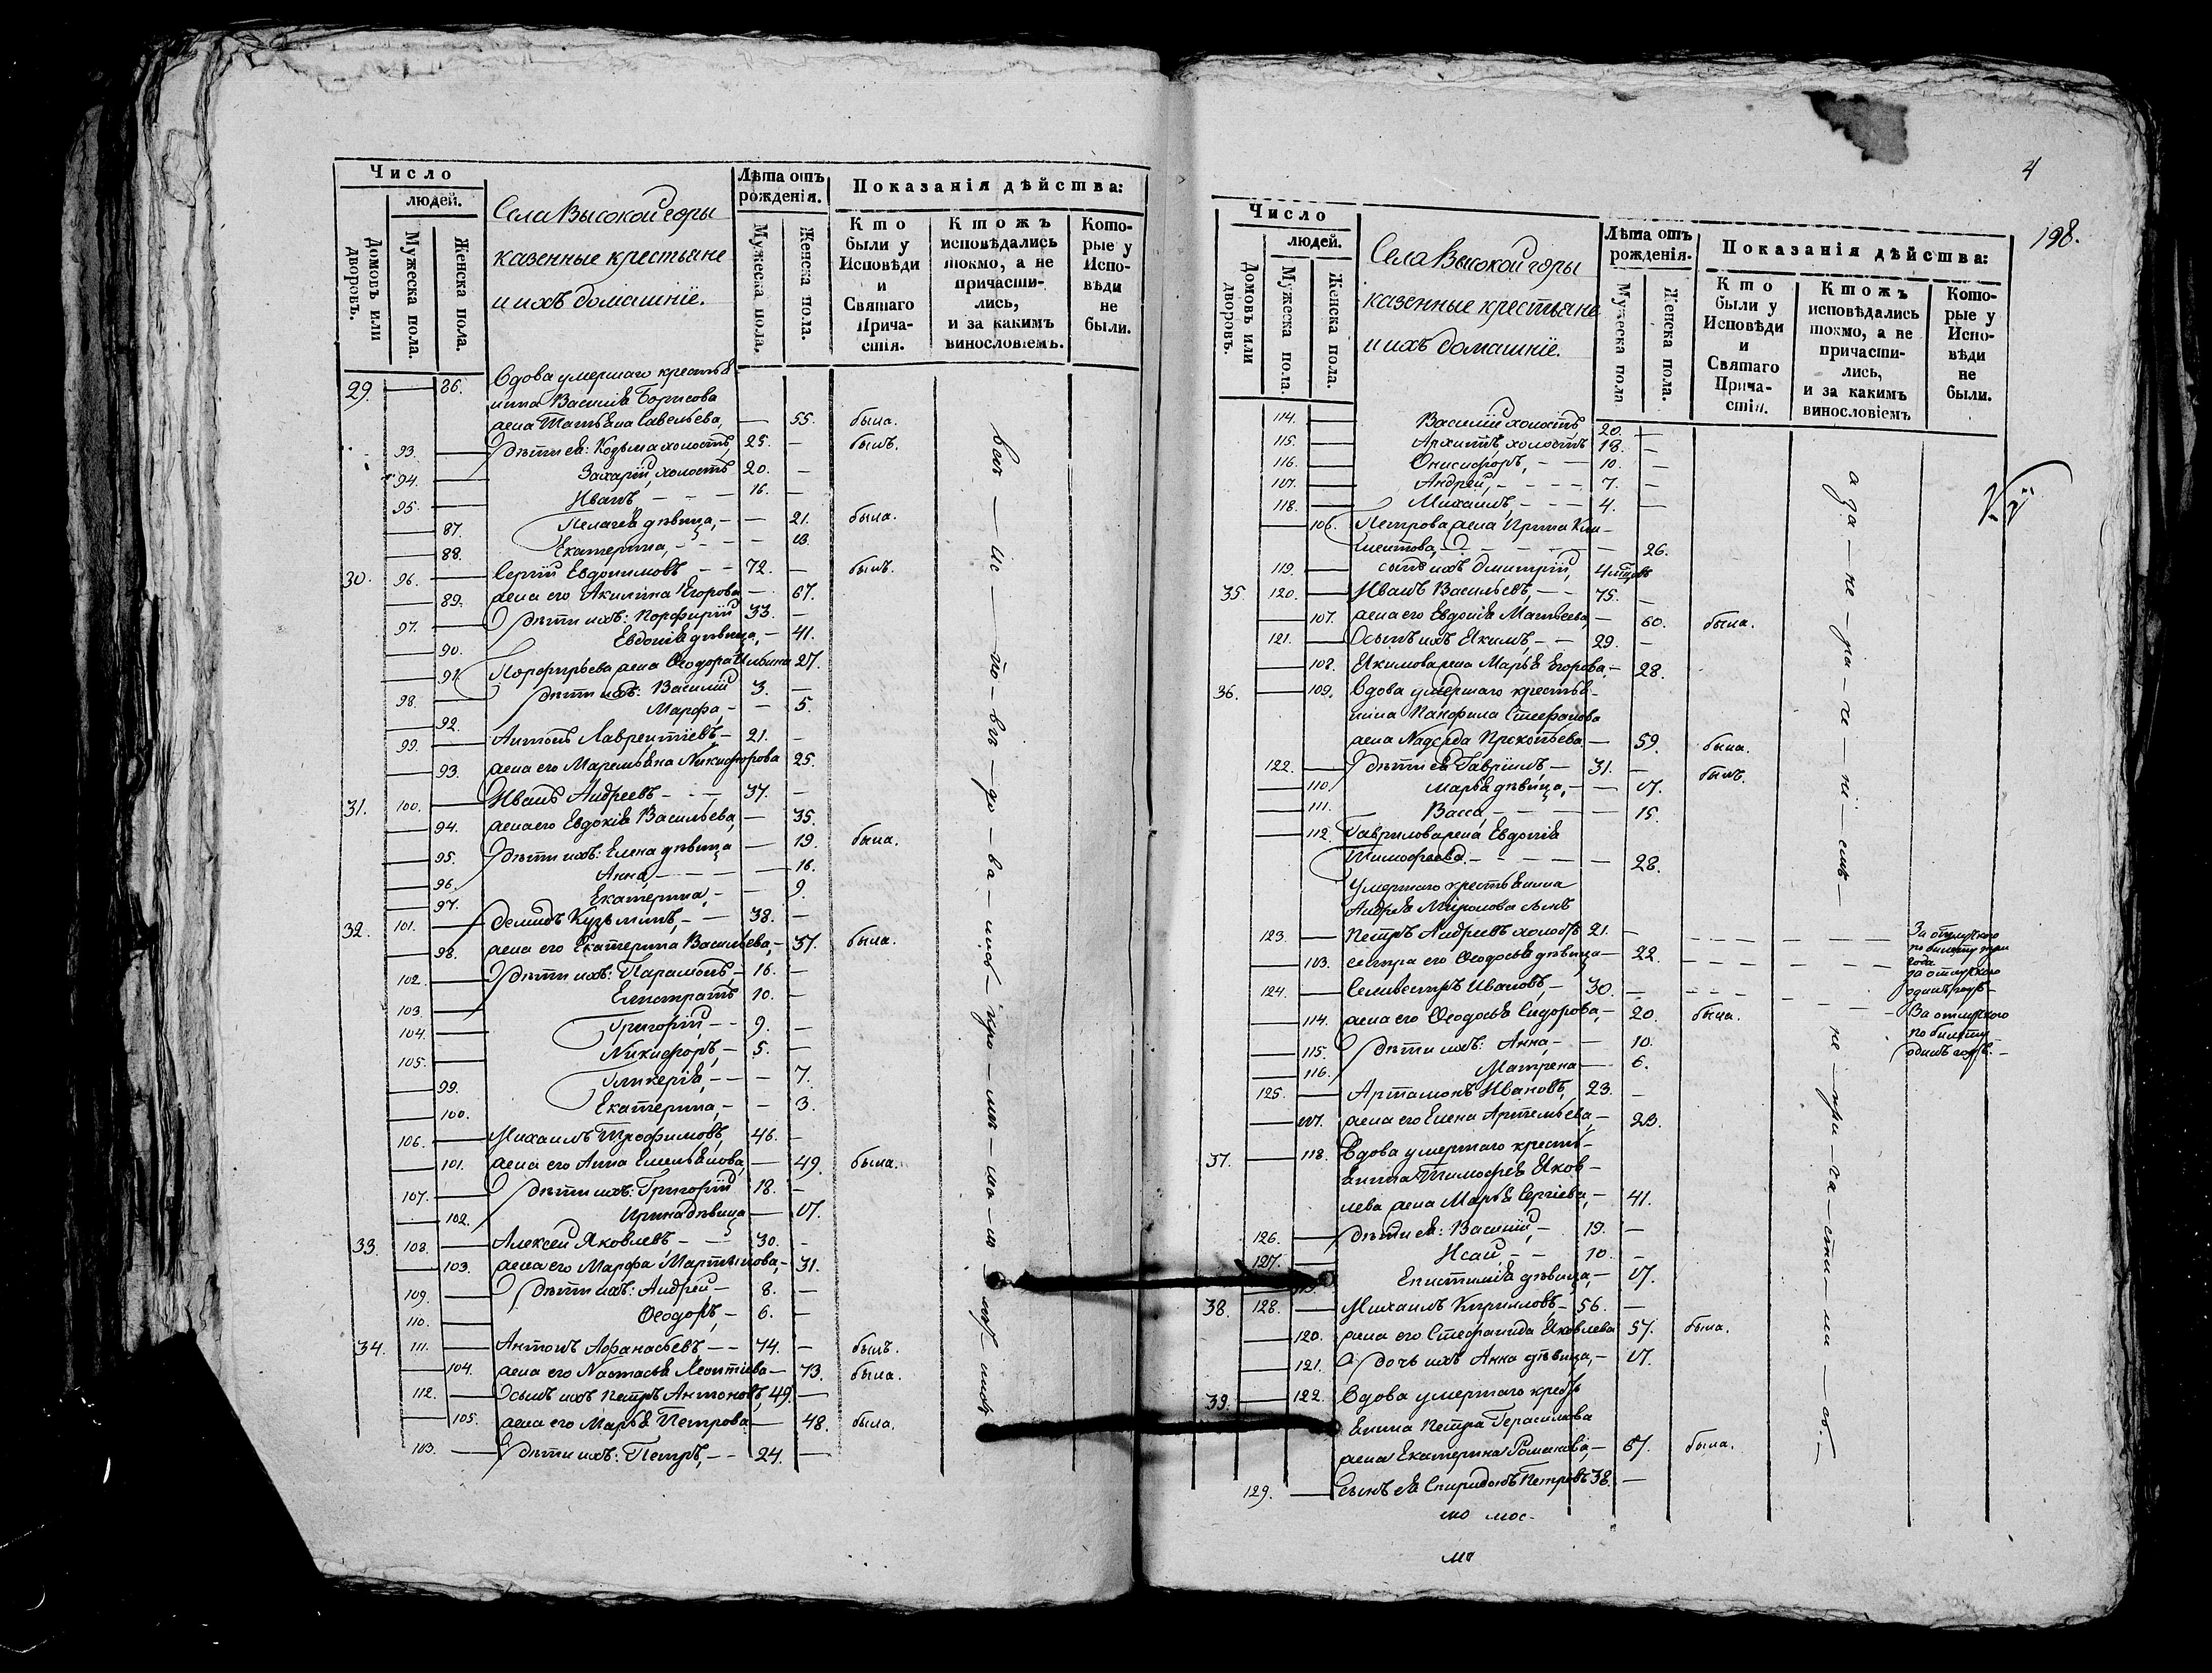 Число
людей.
Домовъ или дворовъ.
Мужеска пола.
Женска пола.
Села Высокой горы
казенные крестьяне
и ихъ домашнїе.
Лѣта отъ рожденія.
Мужеска пола.
Женска пола.
Показанія дѣйства:
Кто были у Исповѣди и Святаго Прича-стія.
Ктожъ исповѣдались токмо, а не причасти-лись, и за какимъ винословіемъ.
Кото-рые у Испо-вѣди не были.
29. — 86. Вдова умершаго крестья-
нина Василія Борисова
жена Татьяна Савельева, — 55. была.
93. — дѣти ея: Козьма холостъ, 25. — былъ.
94. — Захарій, холостъ 20. —
95. — Иванъ - - - 16. —
— 87. Пелагея дѣвица, - — 21. была.
— 88. Екатерина, - - - 13.
30. 96. — Сергій Евдокимовъ - - 72. — былъ.
— 89. жена его Акилина Егорова — 67.
97. — дѣти ихъ: Порфирій 33. —
— 90. Евдокія дѣвица, - 41.
— 91. Порфирьева жена Ѳеодора Ильина 27.
98. — дѣти ихъ: Василій 3. —
— 92. Марфа, - — 5.
99. — Антонъ Лаврентіевъ - 21. -
— 93. жена его Маремьяна Никифорова 25.
31. 100. — Иванъ Андреевъ - - - 37. —
— 94. жена его Евдокія Васильева, — 35.
— 95. дѣти ихъ: Елена дѣвица — 19. была.
— 96. Анна, - - - 16.
— 97. Екатерина, - — 9.
32. 101. — Демидъ Кузьминъ, - - 38. —
— 98. жена его Екатерина Васильева, - 37. была.
102. — дѣти ихъ: Парамонъ, - 16. —
103. — Евпатратъ 10. -
104. — Григорій, - - 9. —
105. — Никифоръ, - 5. —
— 99. Гликерія, - - — 7.
— 100. Екатерина, - - 3.
106. — Михаилъ Трофимовъ, 46. -
— 101. жена его Анна Емельянова, — 49. была.
107. — дѣти ихъ: Григорій 18. —
— 102. Ирина дѣвица — 17.
33. 108. — Алексей Яковлевъ - - - 30. -
— 103. жена его Марфа Мартынова, - 31.
109. — дѣти ихъ: Андрей - 8. —
110. — Ѳеодоръ, - 6. —
34. 111. — Антонъ Афанасьевъ - - 74. - былъ.
— 104. жена его Настасья Леонтіева — 73. была.
112. — Сынъ ихъ Петръ Антоновъ, 49. —
— 105. жена его Марья Петрова — 48. была.
113. — дѣти ихъ: Петръ, - - 24. —
4
198.
Число
людей.
Домовъ или дворовъ.
Мужеска пола.
Женска пола.
Села Высокой горы
казенные крестьяне
и ихъ домашнїе.
Лѣта отъ рожденія.
Мужеска пола
Женска пола.
Показанія дѣйства:
Кто были у Исповѣди и Святаго Прича-стія.
Ктожъ исповѣдались токмо, а не причасти-лись, и за какимъ винословіемъ
Кото-рые у Испо-вѣди не были.
114. — Василій холостъ 20. —
115. — Архипъ холостъ 18. —
116. — Онисифоръ, - — 10. —
117. — Андрей, - - - - 7. —
118. — Михаилъ, - - - 4. —
— 106. Петрова жена Ирина Кли-
ментова, - - - — 26.
119. — сынъ ихъ Дмитрій, 4
35. 120. — Иванъ Васильевъ, - - 75. —
— 107. жена его Евдокія Матвеева, - 60. была.
121. — Сынъ ихъ Якимъ, - - 29. -
— 108. Якимова жена Марья Егорова, - 28.
36. — 109. Вдова умершаго крестья-
нина Панфила Стефанова
жена Надежда Прокопьева — 59. была.
122. — дѣти ея Гавріилъ — 31. — былъ.
— 110. Марья дѣвица, - — 17.
— 111. Васса, - - — 15.
— 112. Гаврилова жена Евдокія
Тимофеева - - - — 28.
Умершаго крестьянина
Андрея Миронова сынъ
123. — Петръ Андреевъ холостъ 21. -
— 113. сестра его Ѳеодосья дѣвица — 22.
124. — Селивестръ Ивановъ, - 30. —
— 114. жена его Ѳеодосья Сидорова, - 20. была.
— 115. дѣти ихъ: Анна, - — 10.
— 116. Матрена — 6.
125. — Артамонъ Ивановъ, 23. -
— 117. жена его Елена Артемьева, - 23.
37. — 118. Вдова умершаго кресть-
янина Тимофея Яков-
лева жена Марья Сергіева, - 41.
126. — дѣти ея: Василій, - 19. —
127. — Исай - - 10. -
119. Епистимія дѣвица, - 17.
38. 128. — Михаилъ Кирилловъ, - 56. —
— 120. жена его Стефанида Яковлева 57. была.
— 121. дочь ихъ Анна дѣвица, - 17.
39. — 122. Вдова умершаго кресть-
янина Петра Герасимова
жена Екатерина Романова, - 67. была.
129. — Сынъ ея Спиридонъ Петровъ 38. —
За отлучкою
по билету три
года
за отлучкою
одинъ годъ -
За отлучкою
по билету
одинъ годъ. -